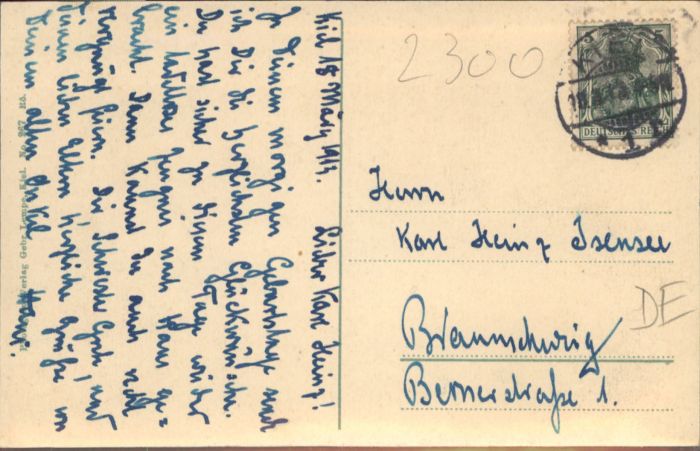 Kiel 18 März 1913. Lieber Karl Heinz!
Zu Deinem morgigen Geburtstage sende
ich Dir die herzlichsten Glückwünsche.
Du hast sicher zu diesem Tage wieder
ein tadelloses Zeugnis nach Haus ge=
bracht. Dann kannst Du auch recht
vergnügt feiern. Die Schwester und
Deinen lieben Eltern herzliche Grüße von
Deinem alten Onkel
Hans.
Verlag Gebr. Lempe, Kiel. No. 267
2300
KIEL
DEUTSCHES REICH
Herrn
Karl Heinz Isensee
Braunschweig
Bernerstraße 1.
DE